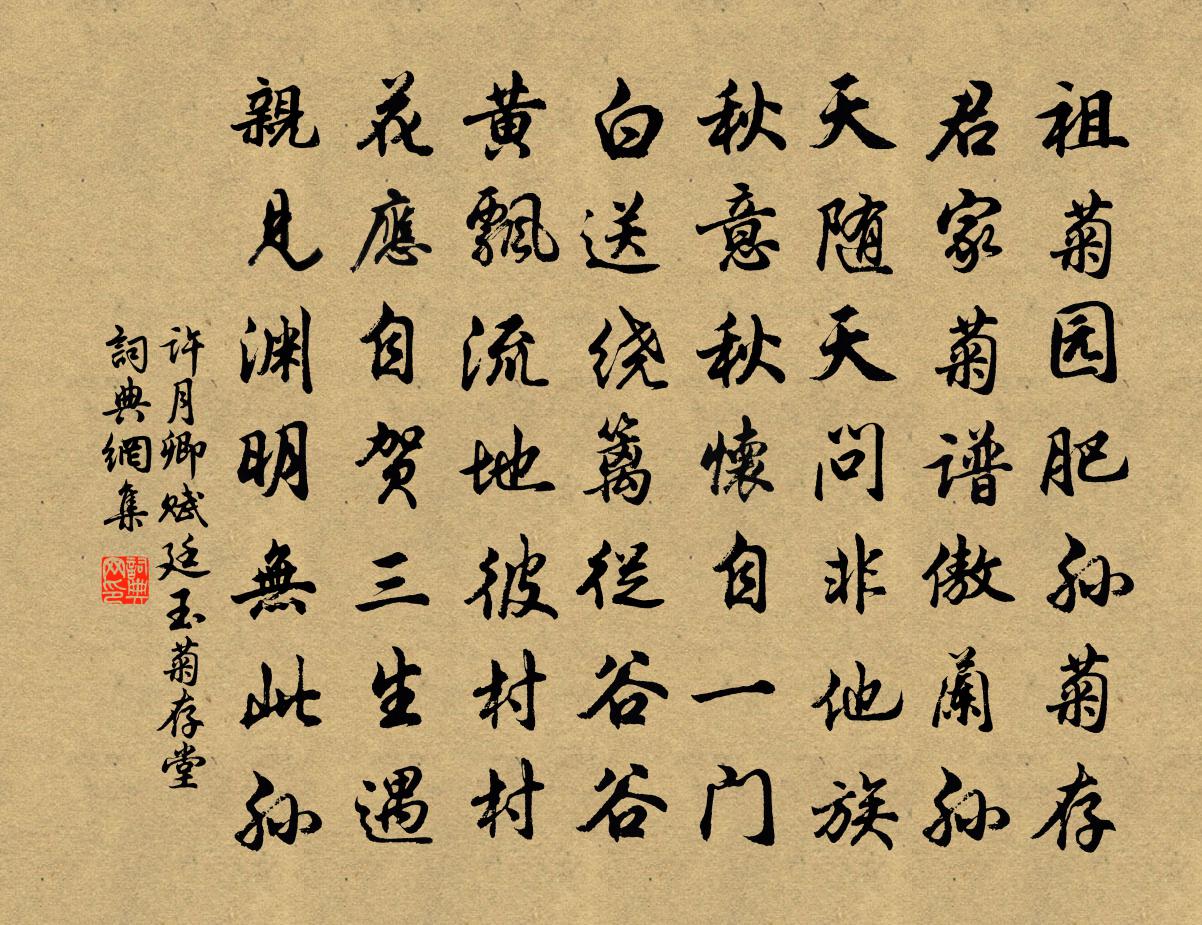 祖菊园肥孙菊存
君家菊谱傲蘭孙
天随天问非他族
秋意秋懷自一门
白送绕篱従谷谷
黄飄流地彼村村
花應自贺三生遇
親見渊明無此孙
许月卿赋廷玉菊存堂
詞典網集
詞典网印